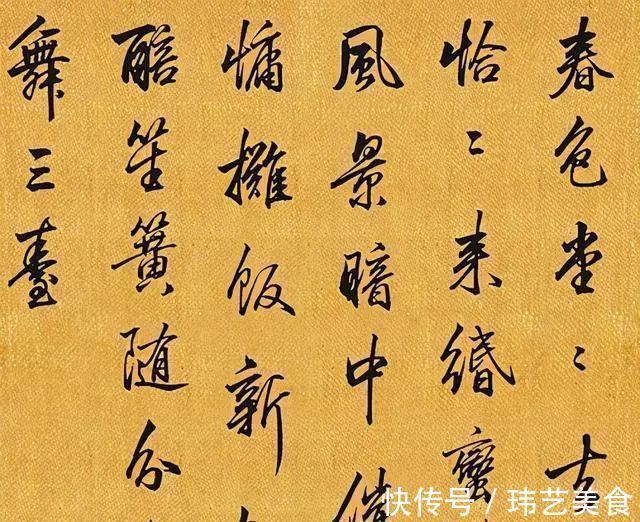 春色堂〻
恰〻来緡蠻
風景暗中催
慵攤飯新
醅笙簧随分
舞三臺
快传号 / 玮艺美食